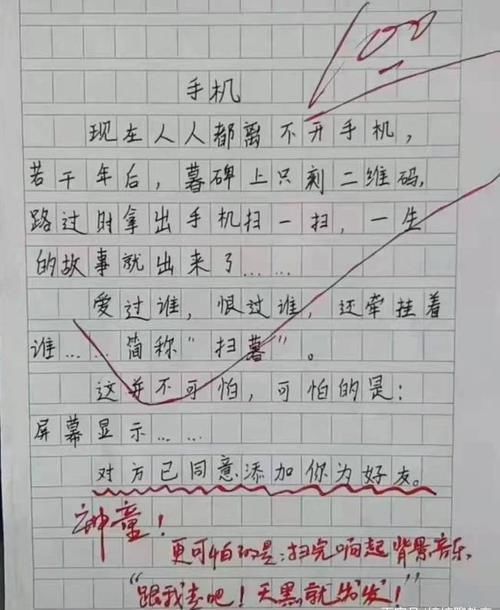 100
手机
现在人人都离不开手机，
若干年后，墓碑上只剩二维码，
路过时拿出手机扫一扫，一生
的故事就出来了……
爱过谁，恨过谁，还牵挂着
谁……简称“扫墓”。
这并不可怕，可怕的是：
屏幕显示……
对方已同意添加你为好友。
神童！
更可怕的是：扫完响起背景音乐
“跟我走吧！天黑就出发！”